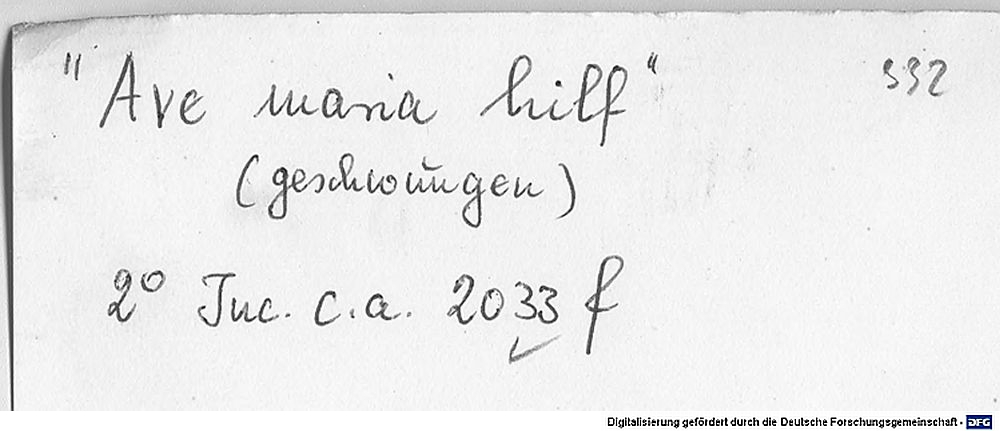 "Ave maria hilf" 332
(geschwungen)
2° Inc. c.a. 2033 f
Digitalisierung gefördert durch die Deutsche Forschungsgemeinschaft - DFG